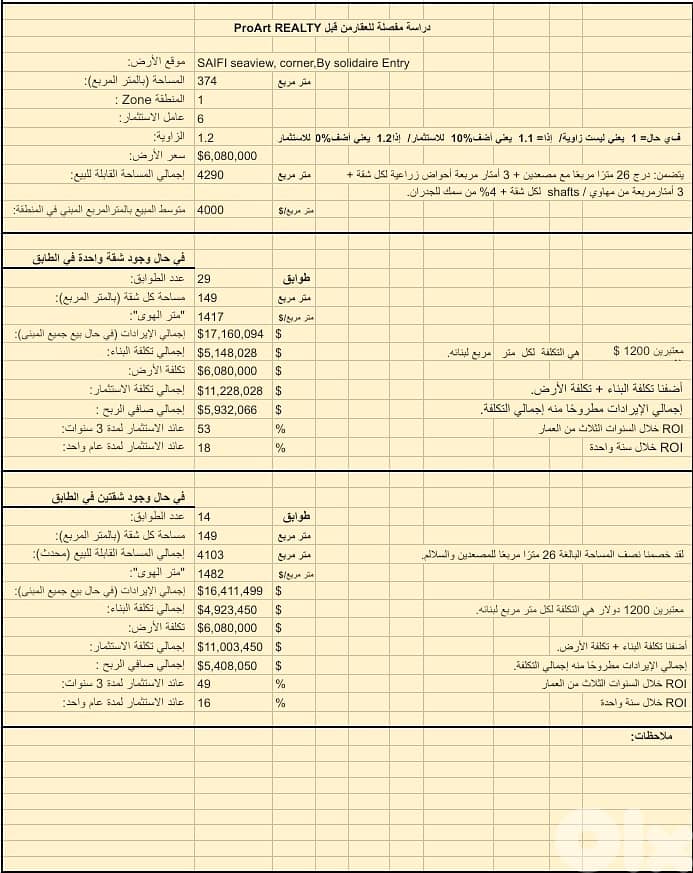 دراسة مفصلة للعقارمن قبل ProArt REALTY
موقع الأرض: SAIFI seaview, corner,By solidaire Entry
المساحة (بالمتر المربع): 374 متر مربع
المنطقة Zone : 1
عامل الاستثمار: 6
الزاوية: 1.2 في حال= 1 يعني ليست زاوية/ إذا= 1.1 يعني أضف%10 للاستثمار/ إذا1.2 يعني أضف%0 للاستثمار
سعر الأرض: $6,080,000
إجمالي المساحة القابلة للبيع: 4290 متر مربع يتضمن: درج 26 مترًا مربعًا مع مصعدين + 3 أمتار مربعة أحواض زراعية لكل شقة +
3 أمتارمربعة من مهاوي / shafts لكل شقة + 4% من سمك للجدران.
متوسط المبيع بالمترالمربع المبني في المنطقة: 4000 متر مربع/$
في حال وجود شقة واحدة في الطابق
عدد الطوابق: 29 طوابق
مساحة كل شقة (بالمتر المربع): 149 متر مربع
"متر الهوى": 1417 متر مربع/$
إجمالي الإيرادات (في حال بيع جميع المبنى): $17,160,094 $
إجمالي تكلفة البناء: $5,148,028 $ معتبرين 1200 $ هي التكلفة لكل متر مربع لبنائه.
تكلفة الأرض: $6,080,000 $
إجمالي تكلفة الاستثمار: $11,228,028 $ أضفنا تكلفة البناء + تكلفة الأرض.
إجمالي صافي الربح : $5,932,066 $ إجمالي الإيرادات مطروحًا منه إجمالي التكلفة.
عائد الاستثمار لمدة 3 سنوات: 53 % ROI خلال السنوات الثلاث من العمار
عائد الاستثمار لمدة عام واحد: 18 % ROI خلال سنة واحدة
في حال وجود شقتين في الطابق
عدد الطوابق: 14 طوابق
مساحة كل شقة (بالمتر المربع): 149 متر مربع
إجمالي المساحة القابلة للبيع (محدث): 4103 متر مربع لقد خصمنا نصف المساحة البالغة 26 مترًا مربعًا للمصعدين والسلالم.
"متر الهوى": 1482 متر مربع/$
إجمالي الإيرادات (في حال بيع جميع المبنى): $16,411,499 $
إجمالي تكلفة البناء: $4,923,450 $ معتبرين 1200 دولار هي التكلفة لكل متر مربع لبنائه.
تكلفة الأرض: $6,080,000 $
إجمالي تكلفة الاستثمار: $11,003,450 $ أضفنا تكلفة البناء + تكلفة الأرض.
إجمالي صافي الربح : $5,408,050 $ إجمالي الإيرادات مطروحًا منه إجمالي التكلفة.
عائد الاستثمار لمدة 3 سنوات: 49 % ROI خلال السنوات الثلاث من العمار
عائد الاستثمار لمدة عام واحد: 16 % ROI خلال سنة واحدة
ملاحظات:
olx